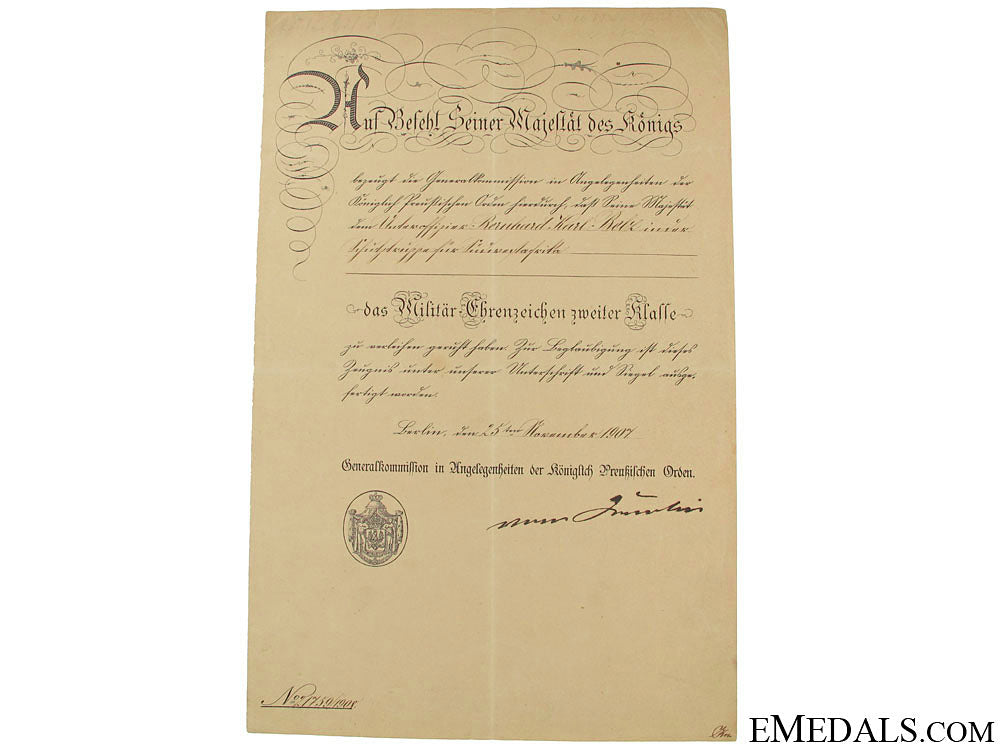 Auf Befehl Seiner Majestät des Königs
bezeugt die Generalkommission in Angelegenheiten der
Königlich Preußischen Orden hierdurch, daß Seine Majestät
dem Unteroffizier Bernhard Karl in der
Schutztruppe für Südwestafrika
das Militär-Ehrenzeichen zweiter Klasse
zu verleihen geruht haben. Zur Beglaubigung ist dieses
Zeugnis unter unserer Unterschrift und Siegel ausge-
fertigt worden.
Berlin, den 25ten November 1907
Generalkommission in Angelegenheiten der Königlich Preußischen Orden.
EMEDALS.COM